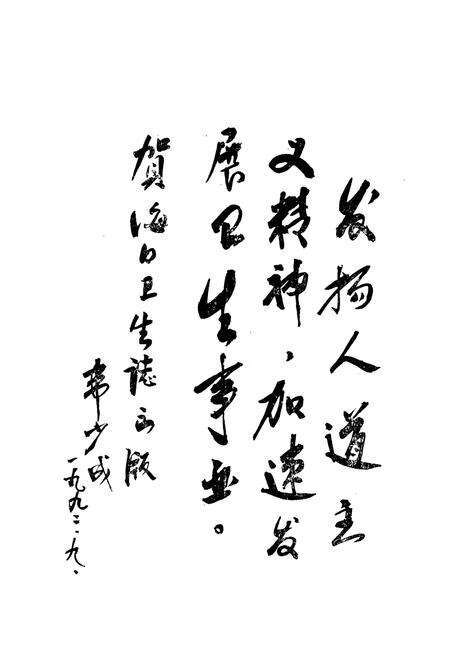 发扬人道主
义精神、加速发
展卫生事业。
賀海口卫生誌出版
少成
一九九二.九.